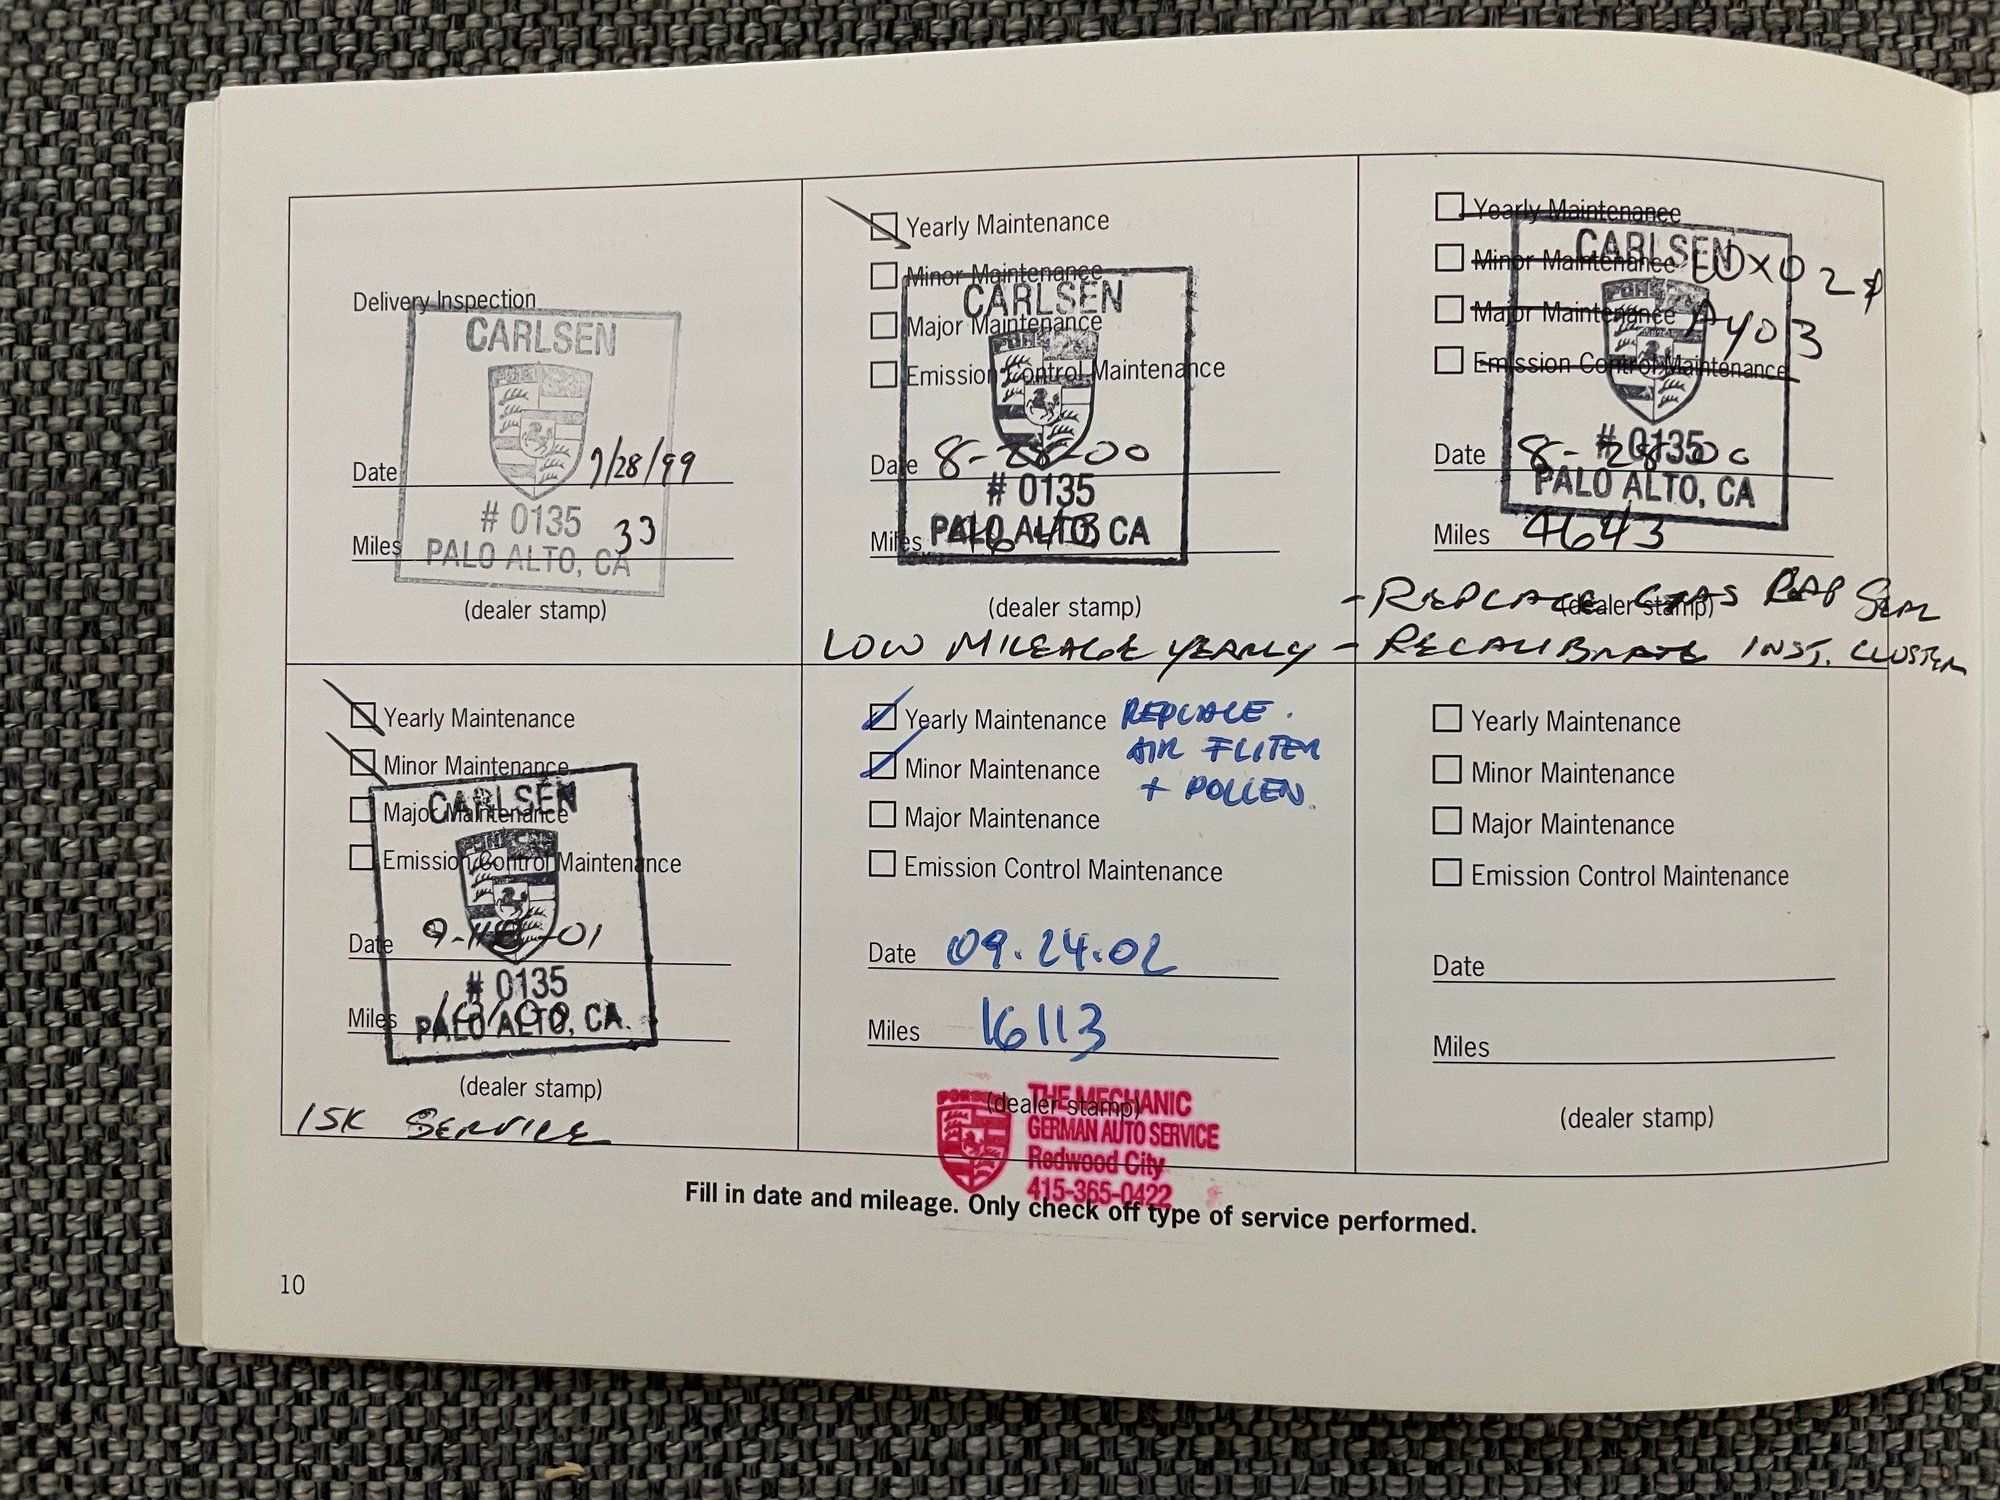 Delivery Inspection
CARLSEN
Date 9/28/99
# 0135
Miles 33
PALO ALTO, CA
(dealer stamp)
Yearly Maintenance
Minor Maintenance
CARLSEN
Major Maintenance
PORSCHE
Emission Control Maintenance
Date 8-28-00
# 0135
Miles
PALO ALTO, CA
(dealer stamp)
LOW MILEAGE YEARLY
Yearly Maintenance
CARLSEN
Minor Maintenance
Major Maintenance
Emission Control Maintenance
Date 8-28-00
# 0135
PALO ALTO, CA
Miles 4643
(dealer stamp)
- REPLACE GAS CAP SEAL
- RECALIBRATE INST. CLUSTER
Yearly Maintenance
Minor Maintenance
CARLSEN
Major Maintenance
Emission Control Maintenance
Date
# 0135
Miles
PALO ALTO, CA.
(dealer stamp)
15K SERVICE
Yearly Maintenance REPLACE.
AIR FLITER
Minor Maintenance
+ POLLEN.
Major Maintenance
Emission Control Maintenance
Date 09.24.02
Miles 16113
(dealer stamp)
PORSCHE
THE MECHANIC
GERMAN AUTO SERVICE
Redwood City
415-365-0422
Yearly Maintenance
Minor Maintenance
Major Maintenance
Emission Control Maintenance
Date
Miles
(dealer stamp)
Fill in date and mileage. Only check off type of service performed.
10